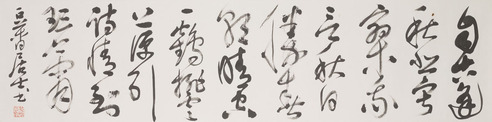 自古逢
秋悲寂
寥我
言秋日
勝春
朝晴空
一鶴排雲
上便引
詩情到
碧霄
居士書